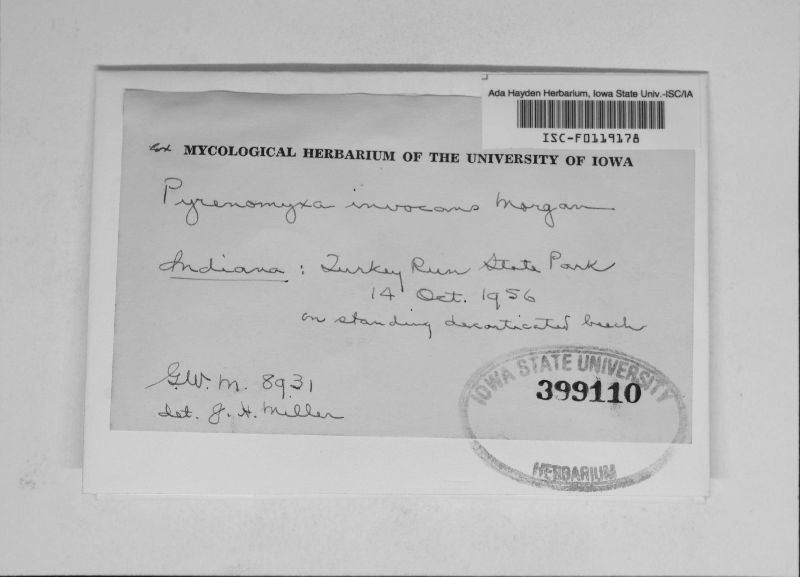 Ada Hayden Herbarium, Iowa State Univ.-ISC/IA
ISC-F0119178
MYCOLOGICAL HERBARIUM OF THE UNIVERSITY OF IOWA
Pyrenomyxa invocans Morgan
Indiana : Turkey Run State Park
14 Oct. 1956
on standing decorticated beech
G.W.M. 8931
det. J. H. Miller
IOWA STATE UNIVERSITY
399110
HERBARIUM